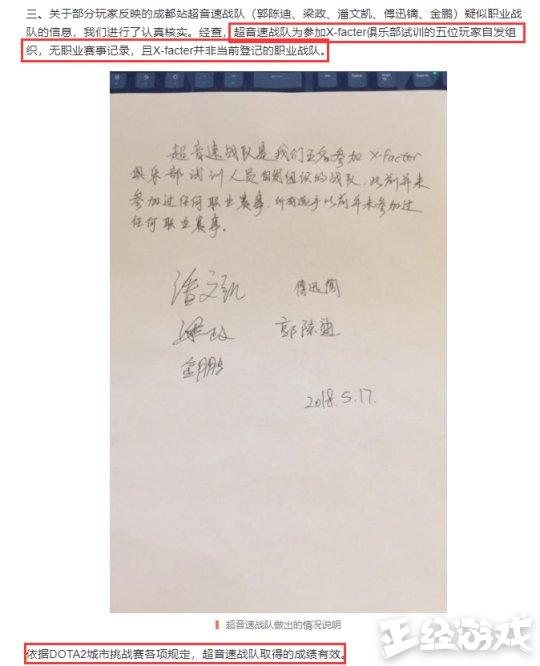 三、关于部分玩家反映的成都站超音速战队（郭陈迪、梁政、潘文凯、傅迅镝、金鹏）疑似职业战
队的信息，我们进行了认真核实。经查，超音速战队为参加X-facter俱乐部试训的五位玩家自发组
织，无职业赛事记录，且X-facter并非当前登记的职业战队。
超音速战队是我们五名参加X-facter
俱乐部试训人员自发组织的战队，此前并未
参加过任何职业赛事，所有选手以前并未参加过
任何职业赛事。
潘文凯 傅迅镝
梁政 郭陈迪
金鹏
2018.5.17.
超音速战队做出的情况说明
依据DOTA2城市挑战赛各项规定，超音速战队取得的成绩有效。
正经游戏